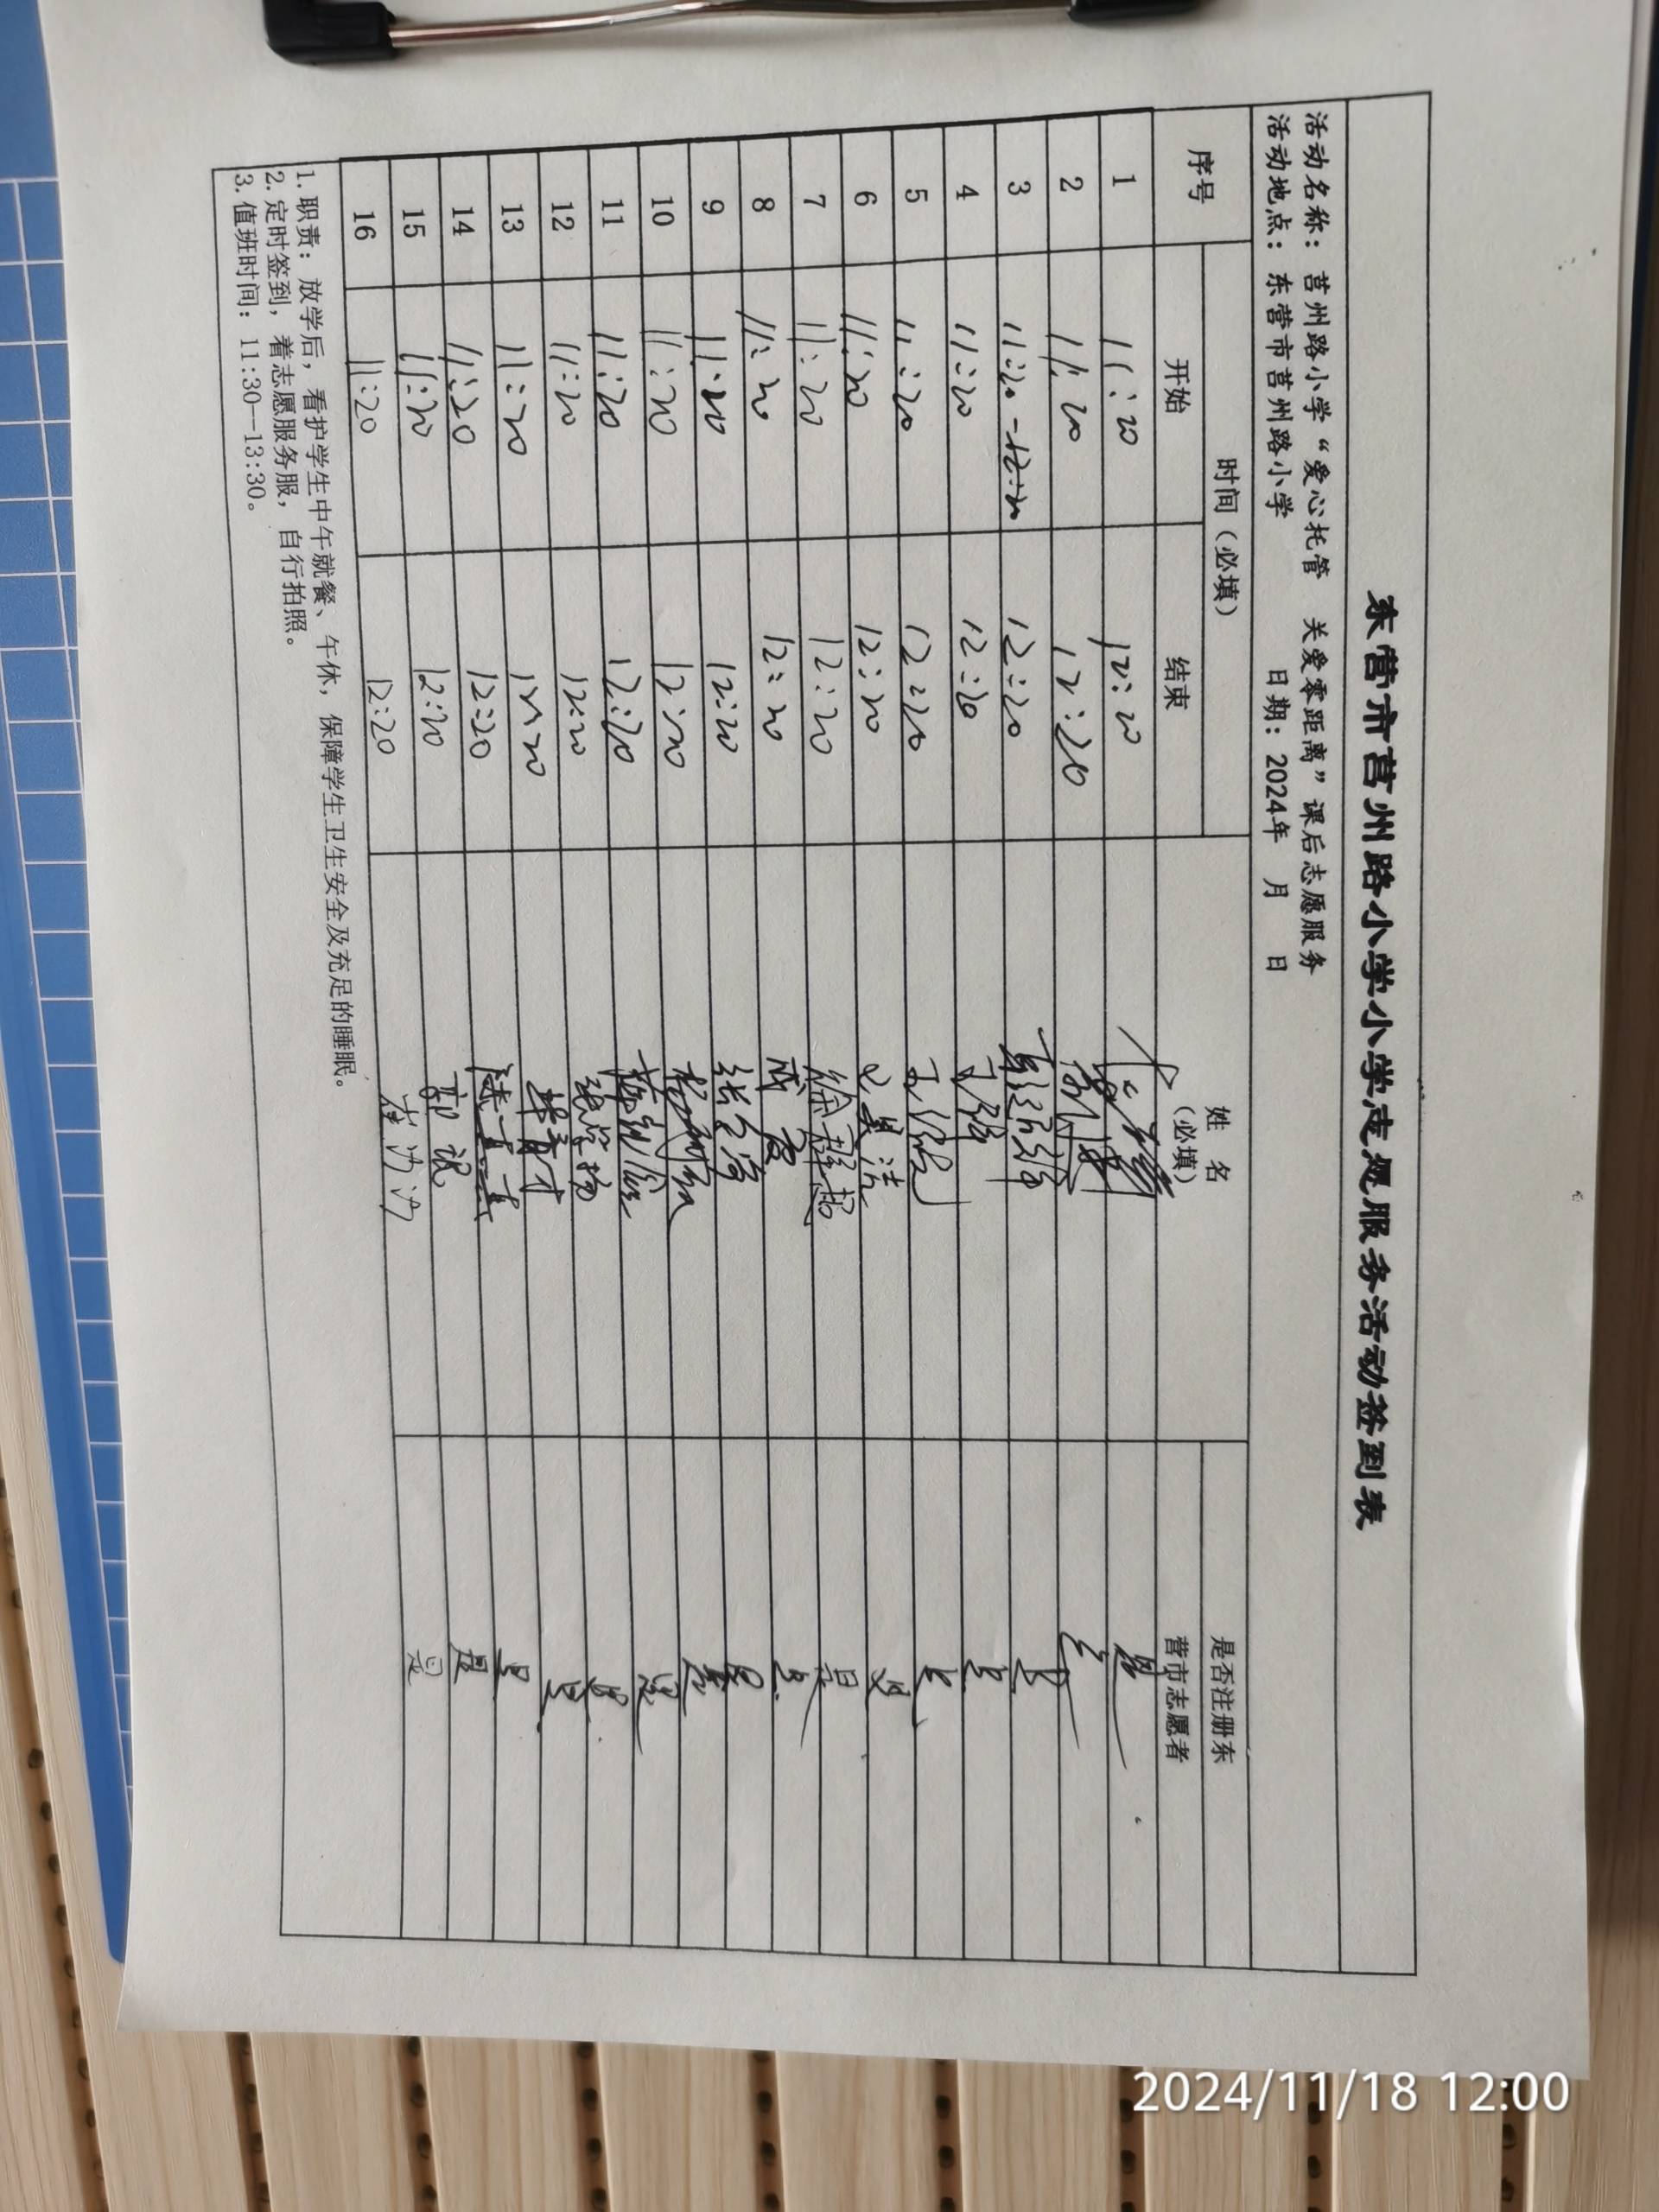 东营市莒州路小学小学志愿服务活动签到表
活动名称：莒州路小学“爱心托管 关爱零距离”课后志愿服务
活动地点：东营市莒州路小学 日期：2024年 月 日
序号 时间（必填） 姓名（必填） 是否注册东营市志愿者
开始 结束
1 11:20 12:20 是
2 11:20 12:20
3 11:20 12:20
4 11:20 12:20 王 是
5 11:20 12:20 王
6 11:20 12:20
7 11:20 12:20 徐 超 是
8 11:20 12:20 是
9 11:20 12:20 张 是
10 11:20 12:20 杨
11 11:20 12:20 是
12 11:20 12:20 张 是
13 11:20 12:20 是
14 11:20 12:20 是
15 11:20 12:20 郭 是
16 11:20 12:20 沙沙 是
1. 职责：放学后，看护学生中午就餐、午休，保障学生卫生安全及充足的睡眠。
2. 定时签到，着志愿服务服，自行拍照。
3. 值班时间：11:30—13:30。
2024/11/18 12:00